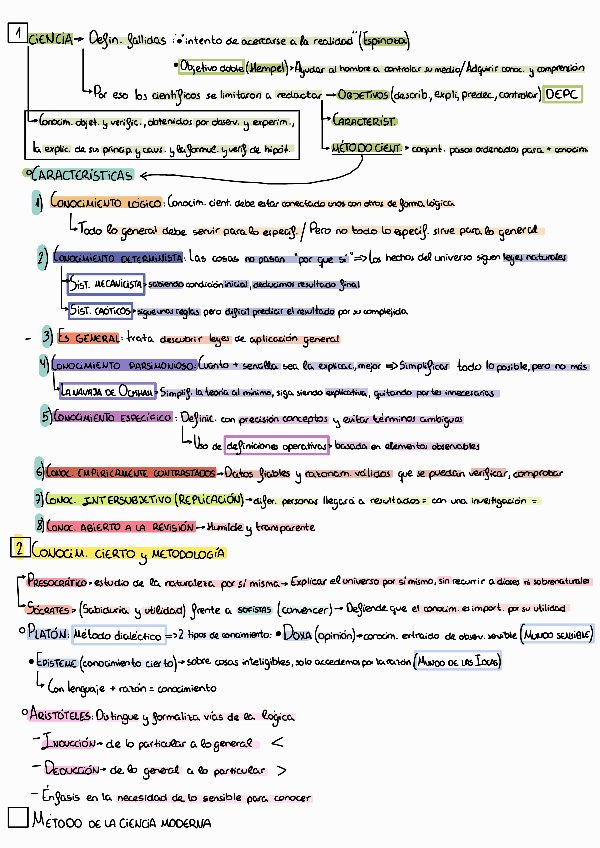 1 CIENCIA → Defin. fallidas: • "intento de acercarse a la realidad" (Espinoza)
• Objetivo doble (Hempel) → Ayudar al hombre a controlar su medio / Adquirir conoc. y comprensión
Por eso los científicos se limitaron a redactar → OBJETIVOS (describ, expli, predec, controlar) DEPC
→ Conocim. objet. y verific., obtenidos por observ. y experim.,
la explic. de sus princip. y caus. y la formul. y verif. de hipót.
→ CARACTERÍST.
→ MÉTODO CIENT. → conjunt. pasos ordenados para + conocim
CARACTERÍSTICAS
1) CONOCIMIENTO LÓGICO: Conocim. cient. debe estar conectado unos con otros de forma lógica
Todo lo general debe servir para lo especif. / Pero no todo lo especif. sirve para lo general
2) CONOCIMIENTO DETERMINISTA: Las cosas no pasan "por que sí" => Los hechos del universo siguen leyes naturales
SIST. MECANICISTA → sabiendo condición inicial, deducimos resultado final
SIST. CAÓTICOS → sigue unas reglas pero difícil predicir el resultado por su complejida.
- 3) ES GENERAL: trata descubrir leyes de aplicación general
4) CONOCIMIENTO PARSIMONIOSO: Cuanto + sencilla sea la explicaci, mejor => Simplificar todo lo posible, pero no más
LA NAVAJA DE OCKHAM → Simplif. la teoría al mínimo, siga siendo explicativa, quitando partes innecesarias
5) CONOCIMIENTO ESPECÍFICO: Definic. con precisión conceptos y evitar términos ambiguos
Uso de definiciones operativas → basada en elementos observables
6) CONOC. EMPÍRICAMENTE CONTRASTADOS → Datos fiables y razonam. válidos que se puedan verificar, comprobar
7) CONOC. INTERSUBJETIVO (REPLICACIÓN) → difer. personas llegará a resultados = con una investigación =
8) CONOC. ABIERTO A LA REVISIÓN → Humilde y transparente
2 CONOCIM. CIERTO Y METODOLOGÍA
PRESOCRÁTICO → estudio de la naturaleza por sí misma → Explicar el universo por sí mismo, sin recurrir a dioses ni sobrenaturales
SÓCRATES → (Sabiduría y utilidad) frente a SOFISTAS (convencer) → Defiende que el conocim. es import. por su utilidad
PLATÓN: Método dialéctico => 2 tipos de conocimiento: • DOXA (opinión) → conocim. extraido de observ. sensible (MUNDO SENSIBLE)
• EPISTEME (conocimiento cierto) → sobre cosas inteligibles, solo accedemos por la razón (MUNDO DE LAS IDEAS)
Con lenguaje + razón = conocimiento
ARISTÓTELES: Distingue y formaliza vías de la lógica
- INDUCCIÓN → de lo particular a lo general <
- DEDUCCIÓN → de lo general a lo particular >
- Énfasis en la necesidad de lo sensible para conocer
MÉTODO DE LA CIENCIA MODERNA